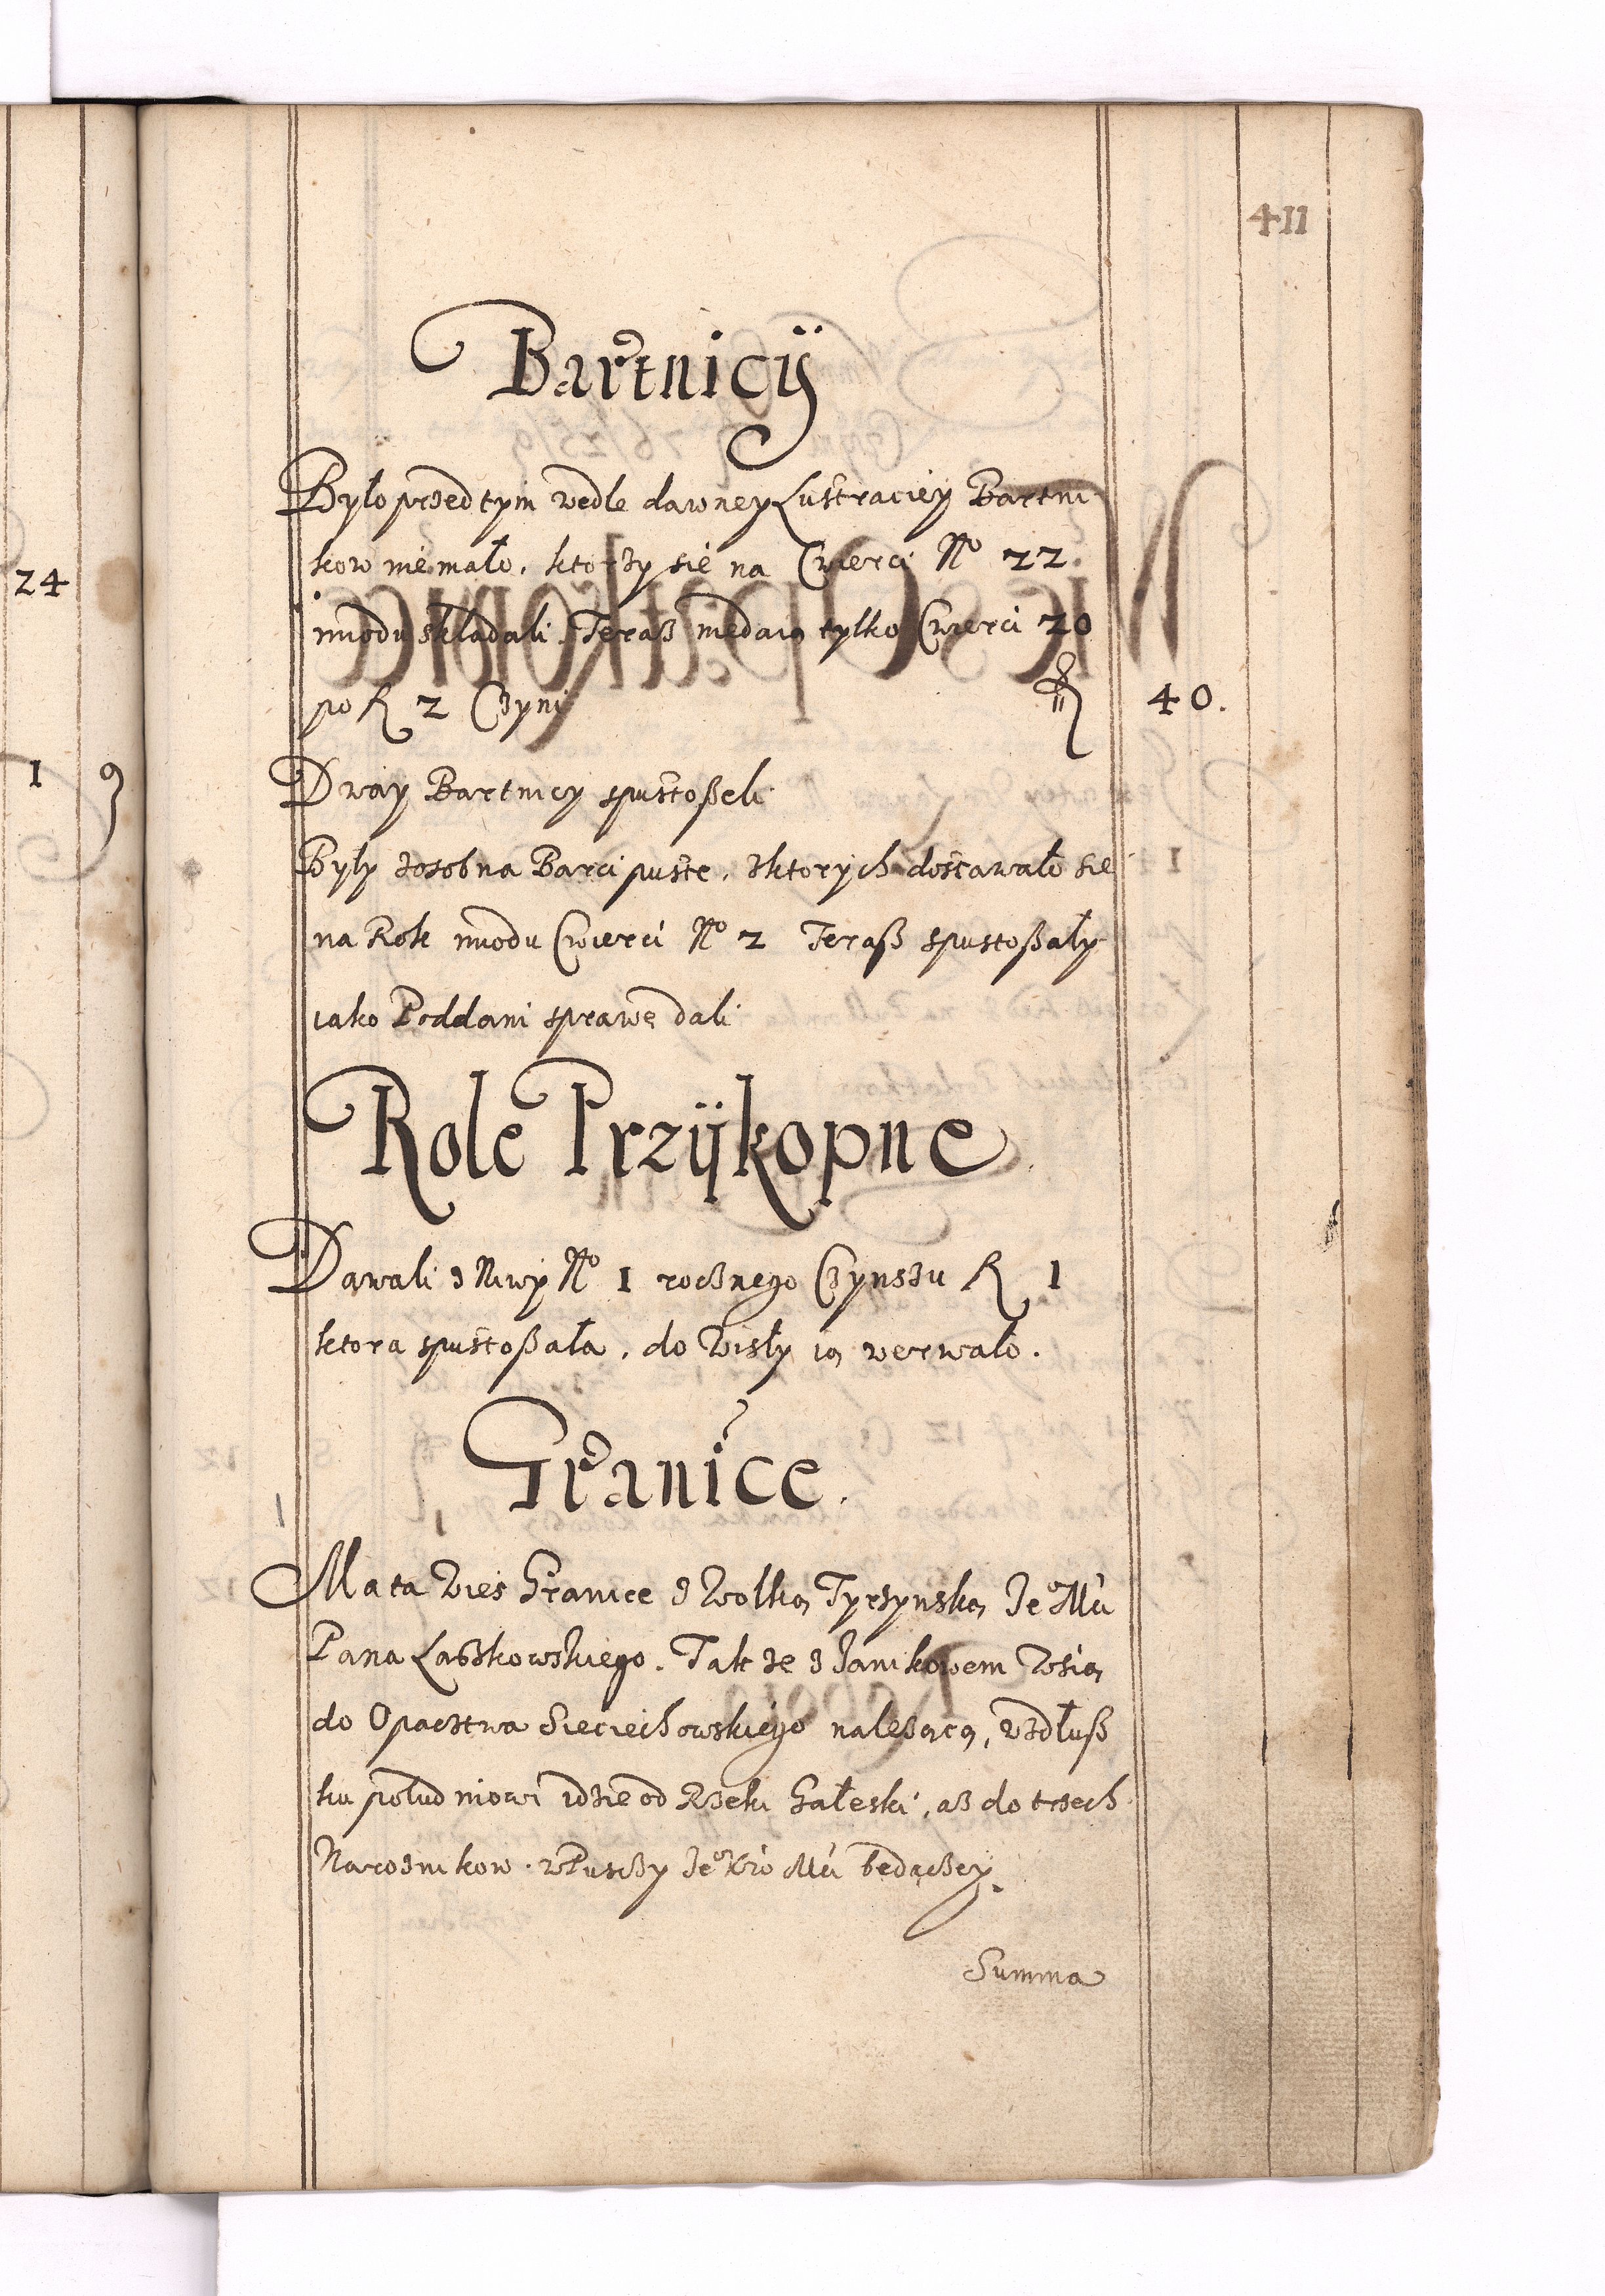 411
Bartnicÿ
Było przed tym wedle dawney Lustraciey Bartni-
kow niemało, ktorzy się na Cwierci No 22.
miodu składali. Teraß niedaią tylko Cwierci 20
po R 2 Czyni 40.
Dway Bartnicy spustoßeli
Były zosobna Barci puste, zktorych dostawało się
na Rok miodu Cwierci No 2 Teraß spustoßały
iako Poddani sprawę dali
Role Przÿkopne
Dawali z Niwy No 1 rocznego Czynszu R 1
ktora spustoßała, do Wisły ią werwało.
Granice.
Ma ta Wieś Granice z Wolką Tyrzynską Je Mci
Pana Laszkowskiego. Tak ze z Janikowem Wsią
do Opactwa Sieciechowskiego należącą, wzdłuß
ku południowi idzie od Rzeki Gałeski, aß do trzech
Naroznikow. w Puszczy Je Kro Mci będączey.
Summa
24
1 9